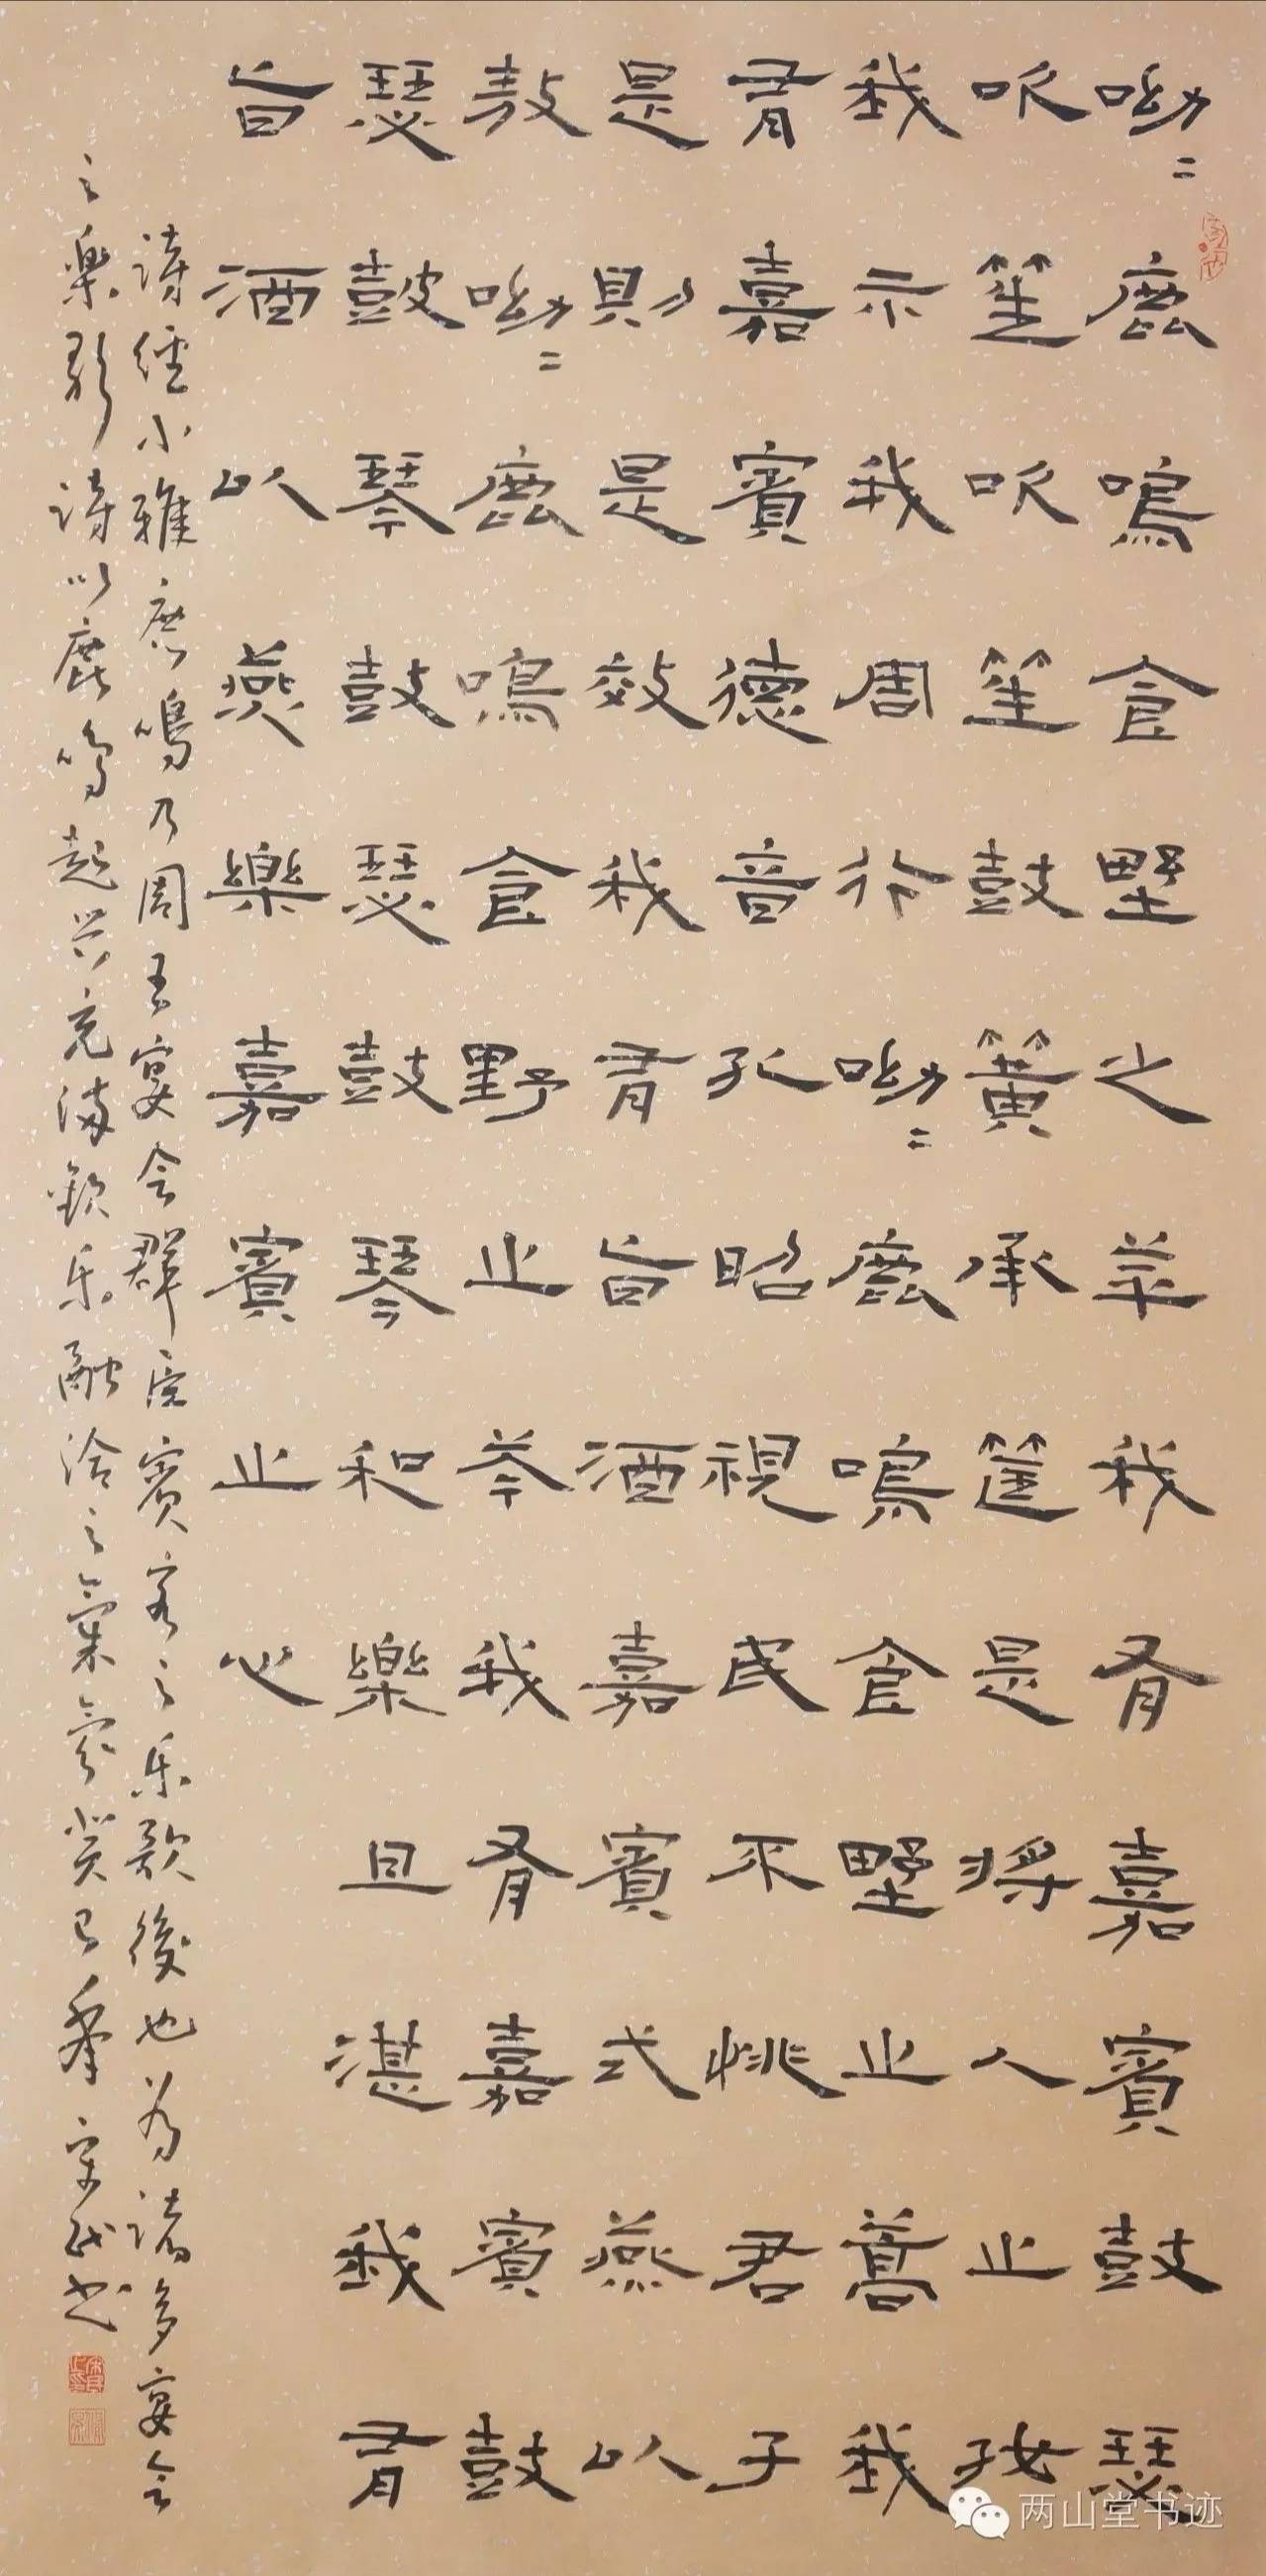 呦=鹿鳴食野之苹我有嘉賓鼓瑟
吹笙吹笙鼓簧承筐是將人之好
我示我周行呦=鹿鳴食野之蒿我
有嘉賓德音孔昭視民不恌君子
是則是效我有旨酒嘉賓式燕以
敖呦=鹿鳴食野之芩我有嘉賓鼓
瑟鼓琴鼓瑟鼓琴和樂且湛我有
旨酒以燕樂嘉賓之心
詩經小雅鹿鳴乃周王宴会群臣賓客之乐歌後也为諸多宴会
之樂歌詩以鹿鳴起兴充满歡乐融洽之氣氛癸巳宋民书
两山堂书迹